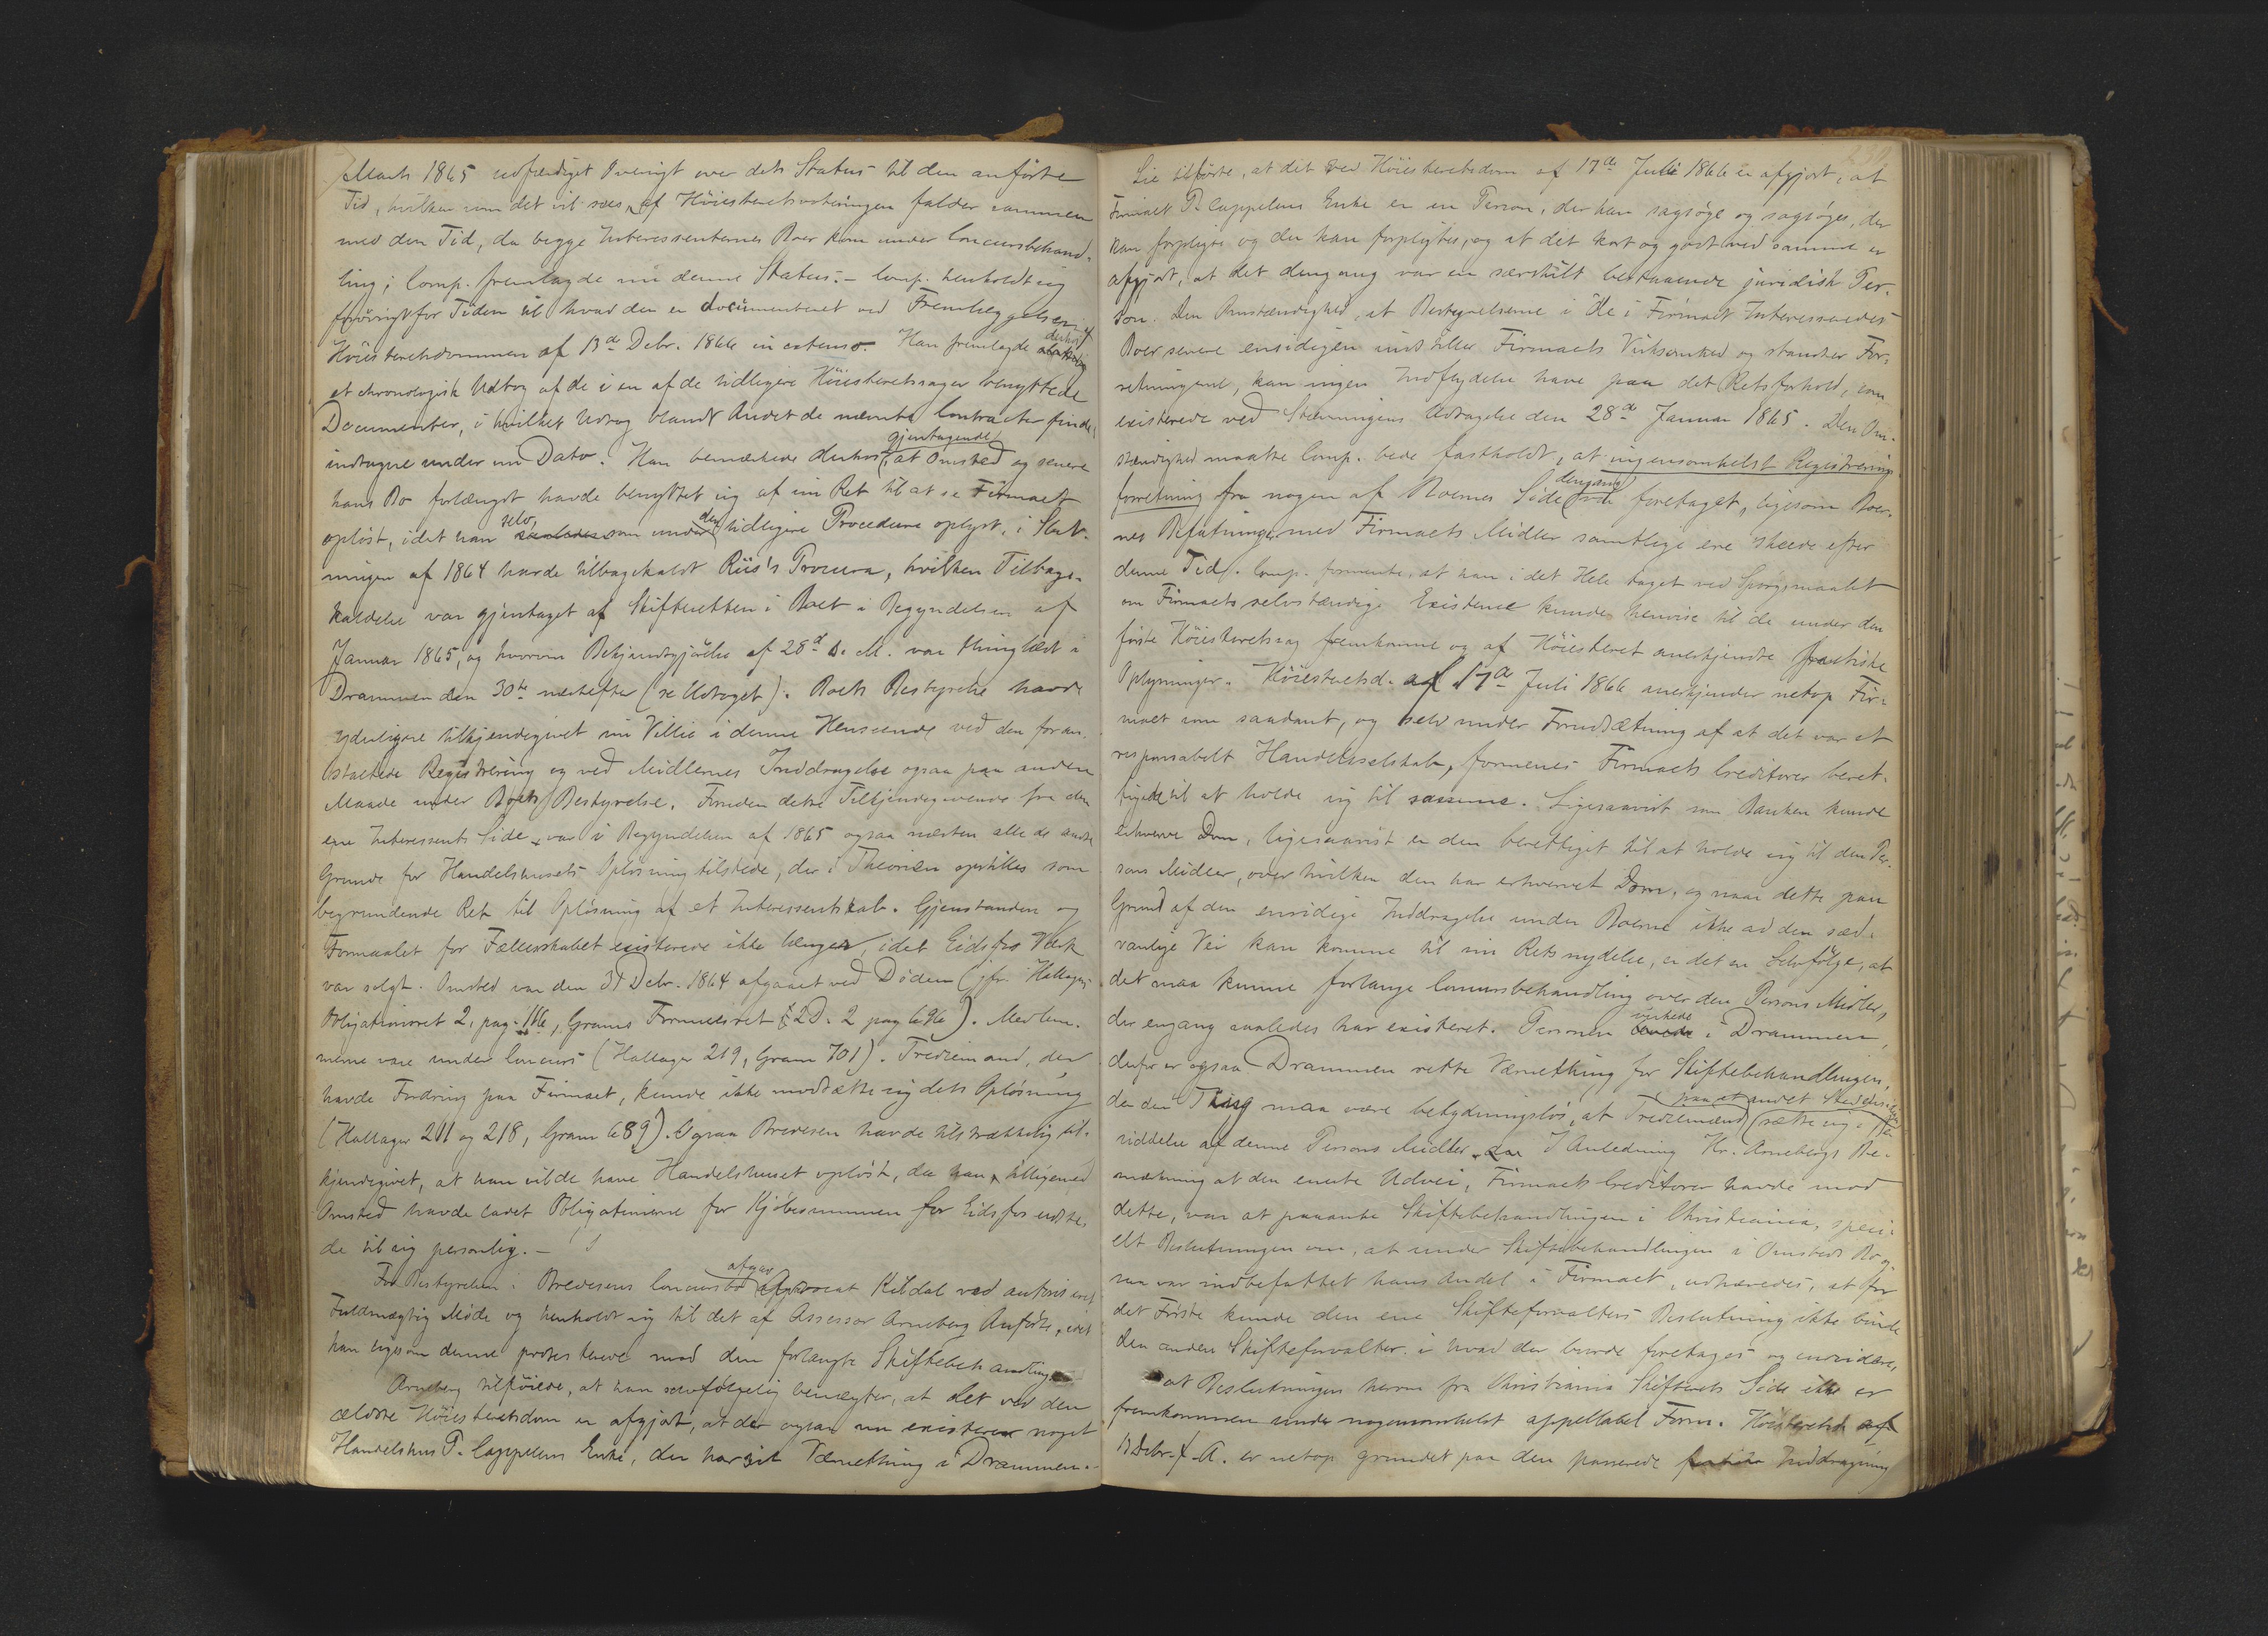 Marts 1865 udfærdiget Oversigt over dets Status til den anførte
Tid, hvilken som det vil sees af Høiesteretsvoteringen falder sammen
med den Tid, da begge Interessenternes Boer kom under Concursbehand-
ling; Comp. fremlagde nu denne Status. – Comp. henholdt sig
forøvrigt for Tiden til hvad der er documenteret ved Fremlæggelsen af
Høiesteretsdommen af 13de Debr. 1866 in extenso. Han fremlagde derhos
et chronologisk Udtog af de i en af de tidligere Høiesteretssager benyttede
Documenter, i hvilket Udtog blandt Andet de nævnte Contracter findes
indtagne under sin Dato. Han bemærkede derhos gjentagende, at Omsted og senere
hans Bo forlængst havde benyttet sig af sin Ret til at se Firmaet
opløst, idet han selv, som under den tidligere Procedure oplyst, i Slut-
ningen af 1864 havde tilbagekaldt Riis's Procura, hvilken Tilbage-
kaldelse var gjentaget af Skifteretten i Boet i Begyndelsen af
Januar 1865, og hvorom Bekjendtgjørelse af 28de s. M. var thinglæst i
Drammen den 30te næstefter (se Udtoget). Boets Bestyrelse havde
yderligere tilkjendegivet sin Villie i denne Henseende ved den foran-
staltede Registrering og ved Midlernes Inddragelse ogsaa paa anden
Maade under Boets Bestyrelse. Foruden dette Tilkjendegivende fra den
ene Interessents Side, var i Begyndelsen af 1865 ogsaa næsten alle de andre
Grunde for Handelshusets Opløsning tilstede, der i Theorien opstilles som
begrundende Ret til Opløsning af et Interessentskab. Gjenstanden og
Formaalet for Fællesskabet existerede ikke længer, idet Eidsfos Værk
var solgt. Omsted var den 31 Debr. 1864 afgaaet ved Døden (jfr. Hallagers
Obligationsret 2, pag. 116, Grams Formueret § 2 D. 2 pag 696). Medlem-
merne vare under Concurs (Hallager 219, Gram 701). Trediemand, der
havde Fordring paa Firmaet, kunde ikke modsætte sig dets Opløsning
(Hallager 211 og 218, Gram 689). Ogsaa Bredesen havde tilstrækkelig til-
kjendegivet, at han vilde have Handelshuset opløst, da han, tilligemed
Omsted havde ladet Obligationerne for Kjøbesummen for Eidsfos udste-
de til sig personlig. –
For Bestyrelsen i Bredesens Concursbo afgav Advocat Kildal ved autoriseret
Fuldmægtig Møde og henholdt sig til det af Assessor Arneberg Anførte, idet
han ligesom denne protesterede mod den forlangte Skiftebehandling.
Arneberg tilføiede, at han selvfølgelig benægter, at det ved den
ældste Høiesteretsdom er afgjort, at der ogsaa nu existerer noget
Handelshus P. Cappelens Enke, der har sit Værnething i Drammen. –
Lie tilførte, at det ved Høiesteretsdom af 17de Juli 1866 er afgjort, at
Firmaet P. Cappelens Enke er en Person, der kan sagsøge og sagsøges, der
kan forpligte og der kan forpligtes, og at det kort og godt ved samme er
afgjort, at det dengang var en særskilt bestaaende juridisk Per-
son. Den Omstændighed, at Bestyrelserne i de i Firmaet Interesseredes
Boer senere ensidigen indstiller Firmaets Virksomhed og standser For-
retningerne, kan ingen Indflydelse have paa det Retsforhold, som
existerede ved Stævningens Udtagelse den 28de Januar 1865. Den Om-
stændighed maatte Comp. bede fastholdt, at ingensomhelst Registrerings
forretning fra nogen af Boernes Side dengang foretaget, ligesom Boer-
nes Befatninger med Firmaets Midler samtlige ere skeede efter
denne Tid. Comp. formente, at han i det Hele taget ved Spørgsmaalet
om Firmaets selvstændige Existence kunde henvise til de under den
første Høiesteretssag fremkomne og af Høiesteret anerkjendte factiske
Oplysninger. Høiesteretsd. af 17de Juli 1866 anerkjender netop Fir-
maet som saadant, og selv under Forudsætning af at det var et
responsabelt Handelsselskab, formenes Firmaets Creditorer beret-
tigede til at holde sig til samme. Ligesaavist som Banken kunde
erhverve Dom, ligesaavist er den berettiget til at holde sig til den Per-
sons Midler, over hvilken den har erhvervet Dom, og naar dette paa
Grund af den ensidige Inddragelse under Boerne ikke ad den sæd-
vanlige Vei kan komme til sin Retsnydelse, er det en Selvfølge, at
det maa kunne forlange Concursbehandling over den Persons Midler,
der engang saaledes har existeret. Personen virkede i Drammen,
derfor er ogsaa Drammen rette Værnething for Skiftebehandlingen,
den Ting maa være betydningsløs, at Trediemand paa et andet Sted sætte sig i
siddelse af denne Persons Midler. I Anledning Hr. Arnebergs Be-
mærkning at den eneste Udvei, Firmaets Creditorer havde mod
dette, var at paaanke Skiftebehandlingen i Christiania, speci-
elt Beslutningen om, at under Skiftebehandlingen i Omsteds Bo og-
saa var indbefattet hans Andel i Firmaet, udhævedes, at for
det Første kunde den ene Skifteforvalters Beslutning ikke binde
den anden Skifteforvalter i hvad der burde foretages og endvidere,
at Beslutningen herom fra Christiania Skifterets Side ikke er
fremkommen under nogensomhelst appellabel Form. Høiesteretsd. af
13 Debr. f. A. er netop grundet paa den passerede factiske Inddragning